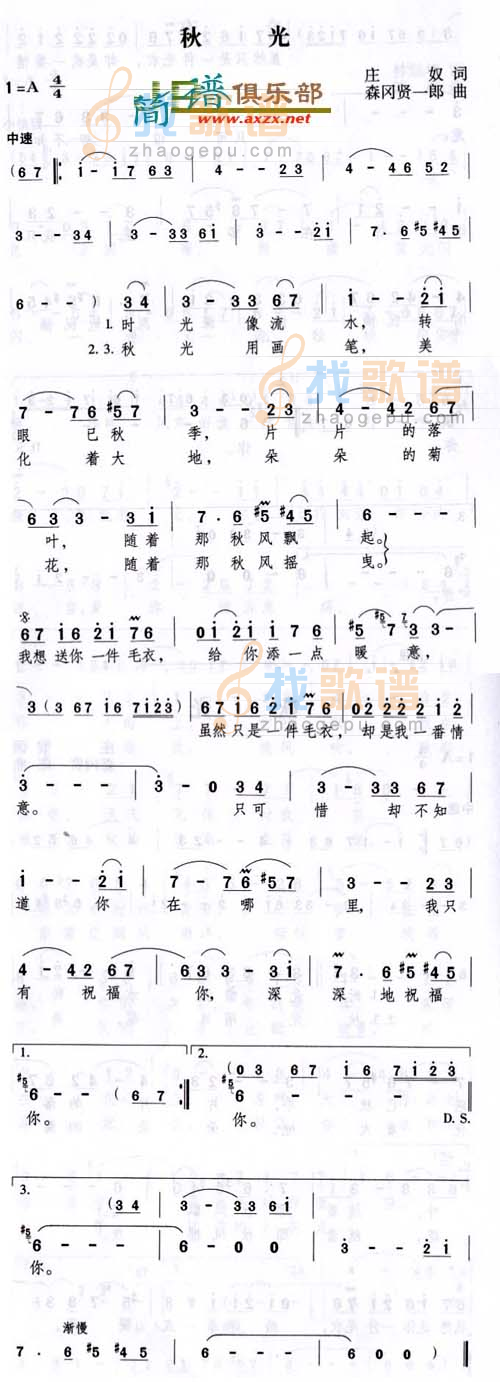 秋 光
1=A 4/4
庄 奴 词
森冈贤一郎 曲
简谱俱乐部
www.axzx.net
找歌谱
zhaogepu.com
中速
(6 7 ‖: i - i 7 6 3 | 4 - - 2 3 | 4 - 4 6 5 2 |
3 - - 3 4 | 3 - 3 3 6 i | 3 - - 2 i | 7 . 6 #5 #4 5 |
6 - - ) 3 4 | 3 - 3 3 6 7 | i - - 2 i |
1. 时 光 像 流 水， 转
2.3. 秋 光 用 画 笔， 美
7 - 7 6 #5 7 | 3 - - 2 3 | 4 - 4 2 6 7 |
眼 已 秋 季， 片 片 的 落
化 着 大 地， 朵 朵 的 菊
找歌谱
zhaogepu.com
6 3 3 - 3 i | 7 . 6 #5 #4 5 | 6 - - 0 |
叶， 随着 那 秋 风 飘 起。
花， 随着 那 秋 风 摇 曳。
6 7 i 6 2 i 7 6 | 0 i 2 i i 7 6 | #5 7 3 3 - |
我想 送你 一件 毛衣， 给 你 添 一 点 暖 意，
3 (3 6 7 i 6 7 i 2 3) | 6 7 i 6 2 i 7 6 | 0 2 2 2 2 i 2 |
虽然 只是 一件 毛衣， 却 是我 一番 情
找歌谱
zhaogepu.com
3 - - - | 3 - 0 3 4 | 3 - 3 3 6 7 |
意。 只可 惜 却 不知
i - - 2 i | 7 - 7 6 #5 7 | 3 - - 2 3 |
道 你 在 哪 里， 我只
4 - 4 2 6 7 | 6 3 3 - 3 i | 7 . 6 #5 #4 5 |
有 祝 福 你， 深 深 地 祝福
1. 2.
6 - - (6 7 :‖ (0 3 6 7 i 6 7 i 2 3)
6 - - - ‖
你。 你。 D.S.
3.
(3 4 | 3 - 3 3 6 i |
6 - - - | 6 - 0 0 | 3 - - 2 i |
你。
渐慢
7 . 6 #5 #4 5 | 6 - - - | 6 0 0 ) ‖